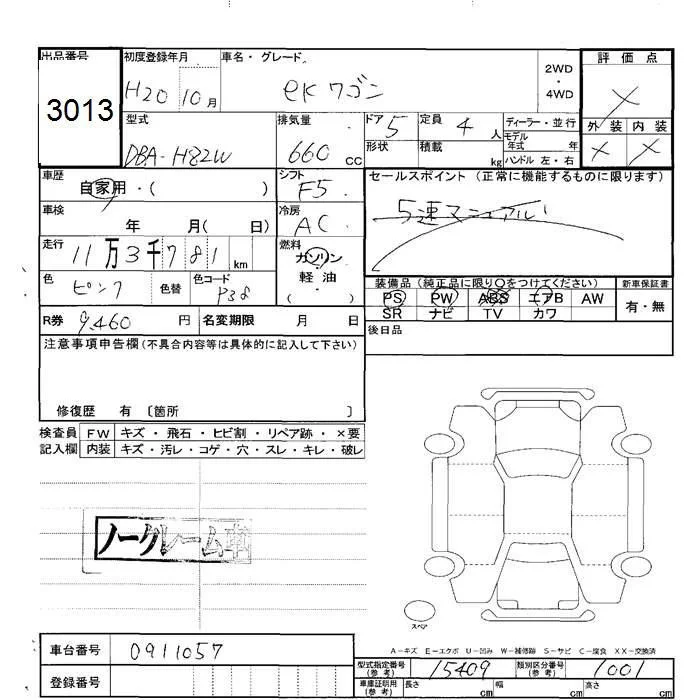 出品番号 初度登録年月 車名・グレード 2WD ・ 4WD 評価点
3013 H20 10月 ekワゴン ×
型式 排気量 ドア 5 定員 4人 ディーラー・並行 外装 内装
DBA-H82W 660 cc 形状 積載 kg モデル年式 年 ハンドル 左・右 × ×
車歴 自家用・( ) シフト F5 セールスポイント (正常に機能するものに限ります)
車検 年 月( 日) 冷房 AC 5速マニュアル!
走行 11万3千781km 燃料 ガソリン 軽油 ( )
色 ピンク 色替 色コード P38 装備品(純正品に限り○をつけてください) 新車保証書
PS PW ABS エアB AW 有・無
SR ナビ TV カワ
R券 9,460円 名変期限 月 日 後日品
注意事項申告欄(不具合内容等は具体的に記入して下さい)
修復歴 有 〔箇所 〕
検査員 FW キズ・飛石・ヒビ割・リペア跡・×要
記入欄 内装 キズ・汚レ・コゲ・穴・スレ・キレ・破レ
ノークレーム車
スペア
A-キズ E-エクボ U-凹み W-補修跡 S-サビ C-腐食 XX-交換済
車台番号 0911057
型式指定番号(参考) 15409 類別区分番号(参考) 1001
登録番号 車庫証明用(参考) 長さ cm 幅 cm 高さ cm